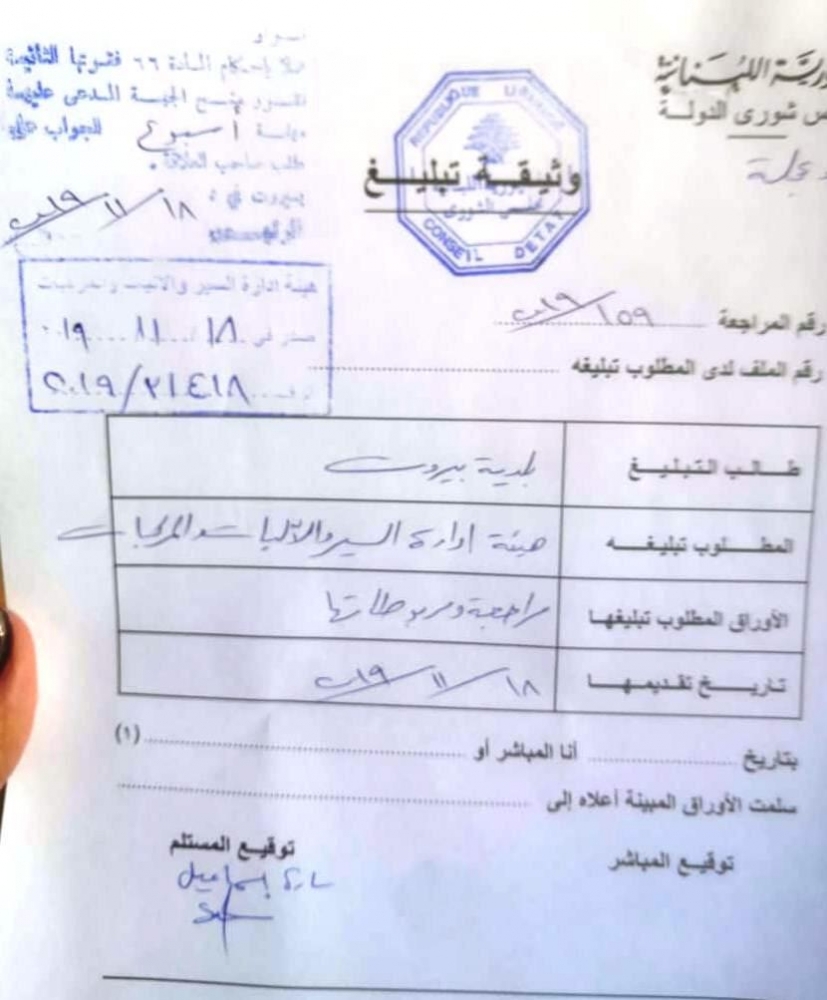 اللبنانية
شورى الدولة
وثيقة تبليغ
REPUBLIQUE
CONSEIL D'ETAT
مجلس الشورى
باحكام المادة ٦٦ فقرتها الثانية
الجهة المدعى عليها
مهلة اسبوع للجواب على
طلب صاحب العلاقة.
بيروت في :
١٨ / ١١ / ٢٠١٩
الرئيس
هيئة ادارة السير والآليات والمركبات
صدر في ١٨ / ١١ / ٢٠١٩
٢١٤١٨/٢٠١٩
رقم المراجعة ................
رقم الملف لدى المطلوب تبليغه ................
طالب التبليغ
بلدية بيروت
المطلوب تبليغه
هيئة ادارة السير والآليات والمركبات
الأوراق المطلوب تبليغها
مراجعة ومربوطاتها
تاريخ تقديمها
١٨ / ١١ / ٢٠١٩
بتاريخ ................ أنا المباشر أو ................ (١)
سلمت الأوراق المبينة أعلاه إلى ................
توقيع المباشر
توقيع المستلم
سارة اسماعيل